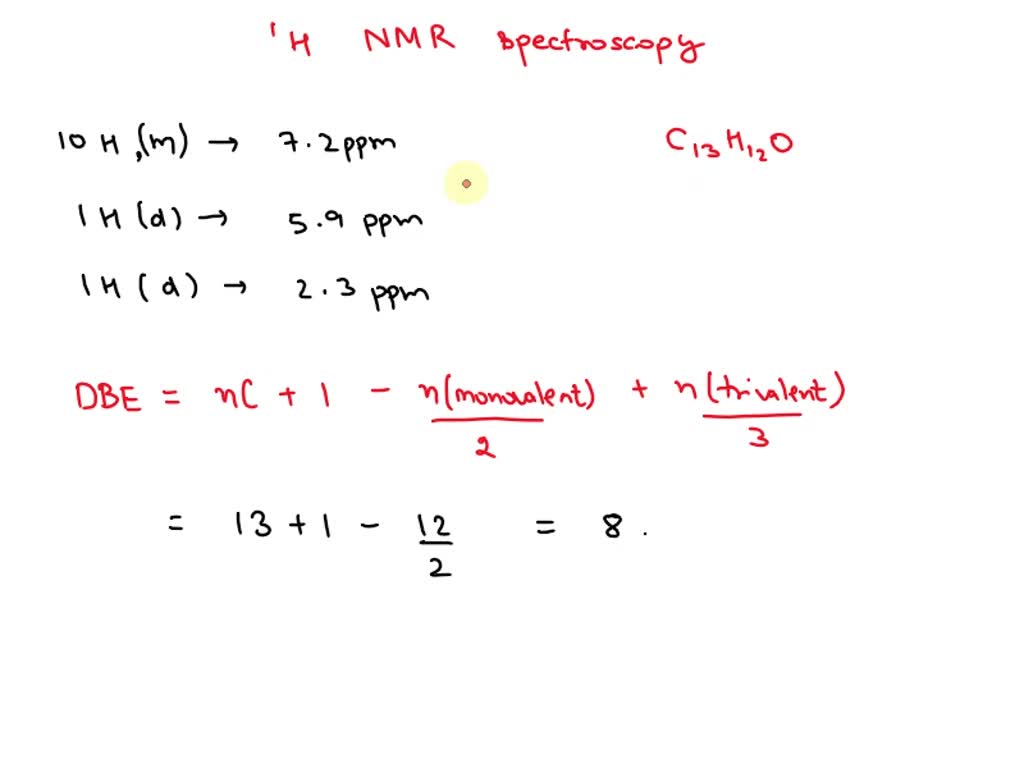 ¹H NMR spectroscopy
10 H,(m) → 7.2 ppm C₁₃H₁₂O
1H (d) → 5.9 ppm
1H (d) → 2.3 ppm
DBE = nC + 1 - n(monovalent)/2 + n(trivalent)/3
= 13 + 1 - 12/2 = 8.